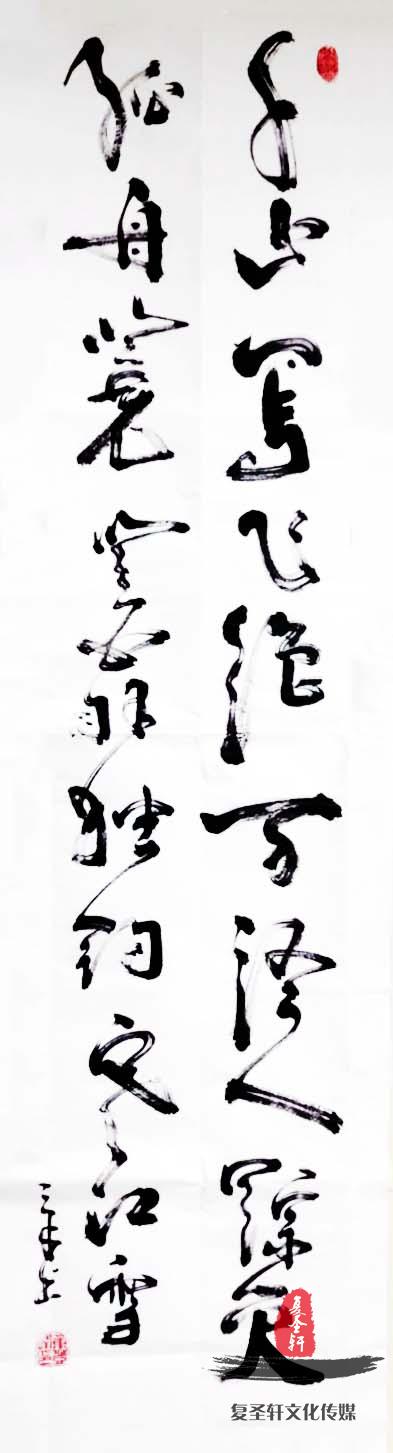 千山鸟飞绝万径人踪灭
孤舟蓑笠翁独钓寒江雪
复圣轩
复圣轩文化传媒